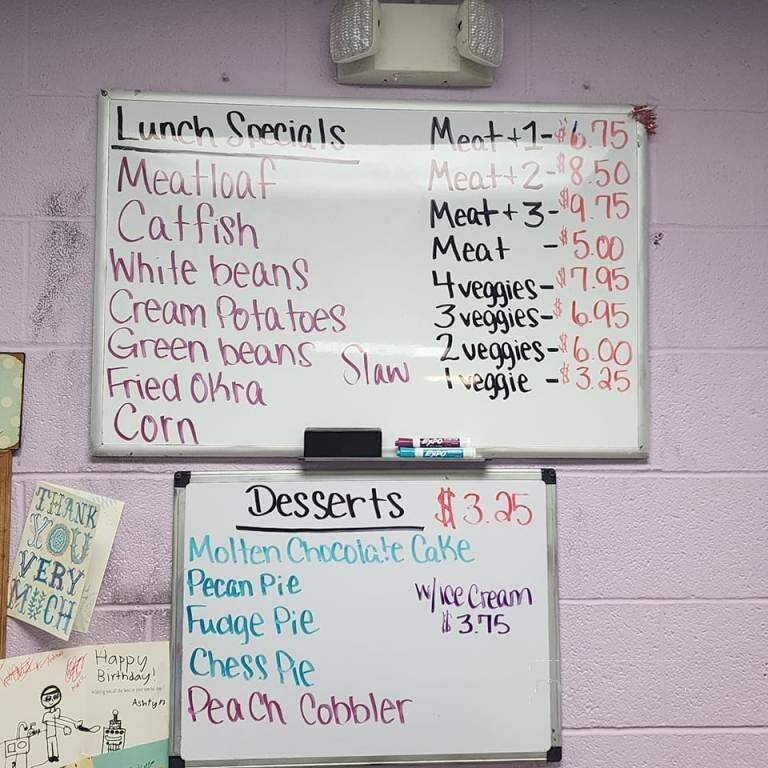 Lunch Specials
Meatloaf
Catfish
White beans
Cream Potatoes
Green beans
Slaw
Fried Okra
Corn
Meat + 1 - $6.75
Meat + 2 - $8.50
Meat + 3 - $9.75
Meat - $5.00
4 veggies - $7.95
3 veggies - $6.95
2 veggies - $6.00
1 veggie - $3.25
EXPO
EXPO
Desserts $3.25
Molten Chocolate Cake
Pecan Pie
Fudge Pie
Chess Pie
Peach Cobbler
w/ice Cream
$3.75
THANK
YOU
VERY
MUCH
Happy
Birthday!
Ashtyn